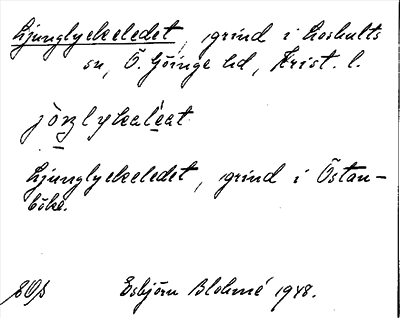 Ljunglyckeledet, grind i Loshults
sn, Ö. Göinge hd, Krist. l.
jöŋlykaléat
Ljunglyckeledet, grind i Östan-
böke.
Esbjörn Blohmé 1948.